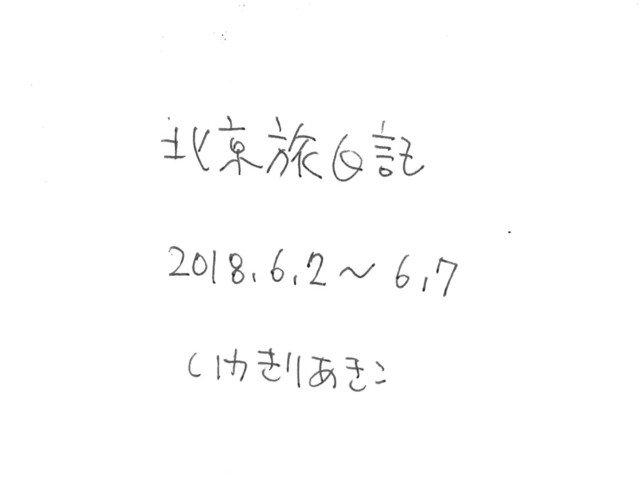 北京旅日記
2018.6.2〜6.7
いけきりあきこ